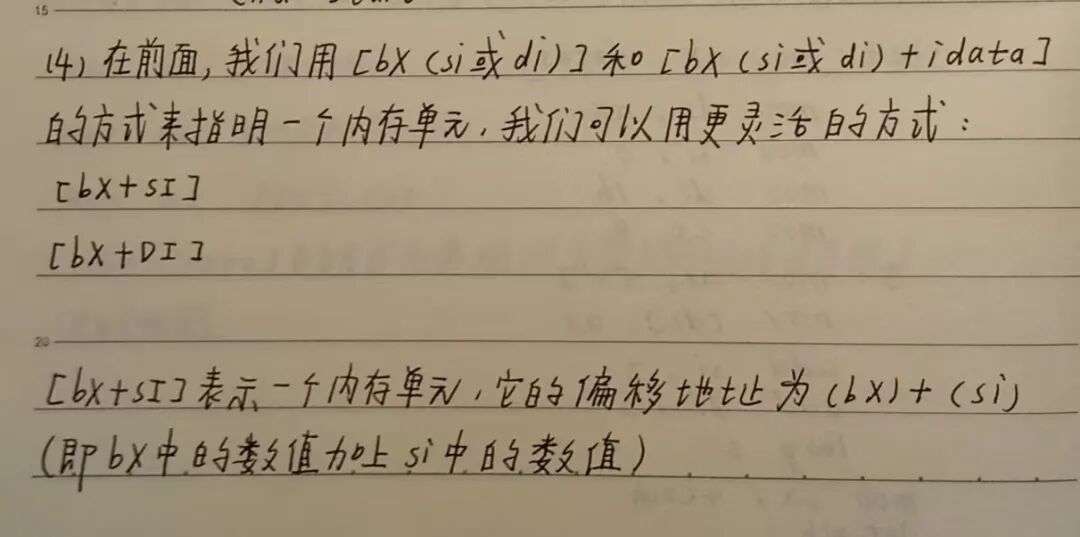 15
(4) 在前面, 我们用 [bx (si或 di)] 和 [bx (si或 di) + idata]
的方式来指明一个内存单元, 我们可以用更灵活的方式:
[bx+SI]
[bx+DI]
20
[bx+SI] 表示一个内存单元, 它的偏移地址为 (bx) + (si)
(即bx中的数值加上 si中的数值)